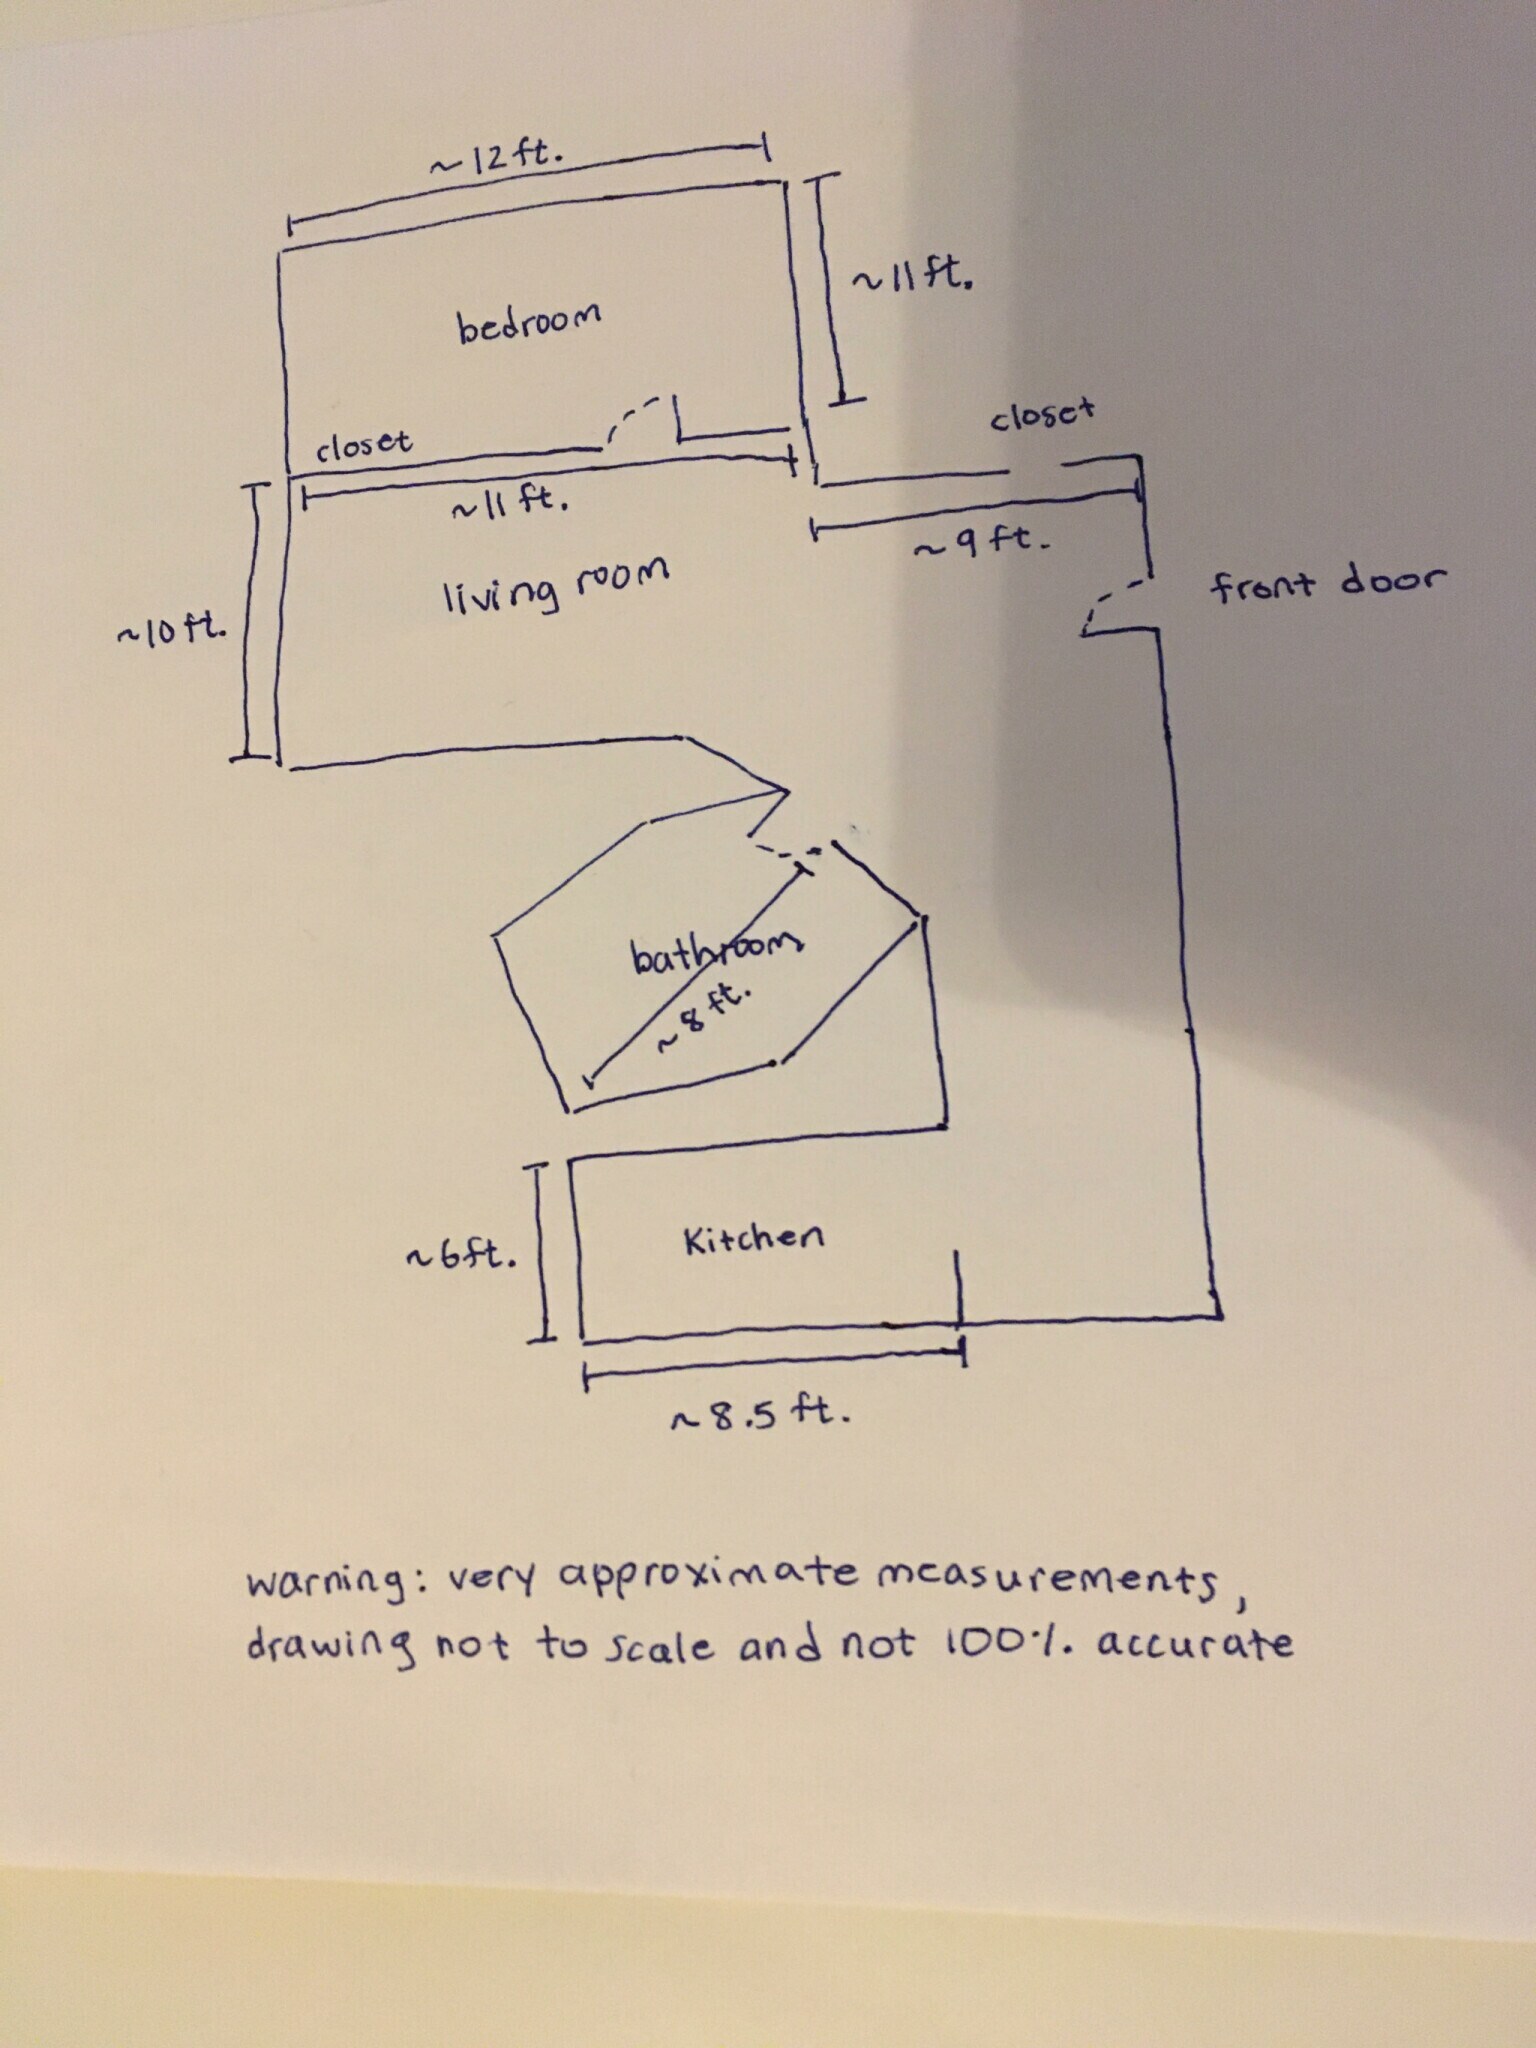 ~12 ft.
~11 ft.
bedroom
closet
closet
~11 ft.
~9 ft.
living room
front door
~10 ft.
bathroom
~8 ft.
Kitchen
~6 ft.
~8.5 ft.
warning: very approximate measurements,
drawing not to scale and not 100% accurate